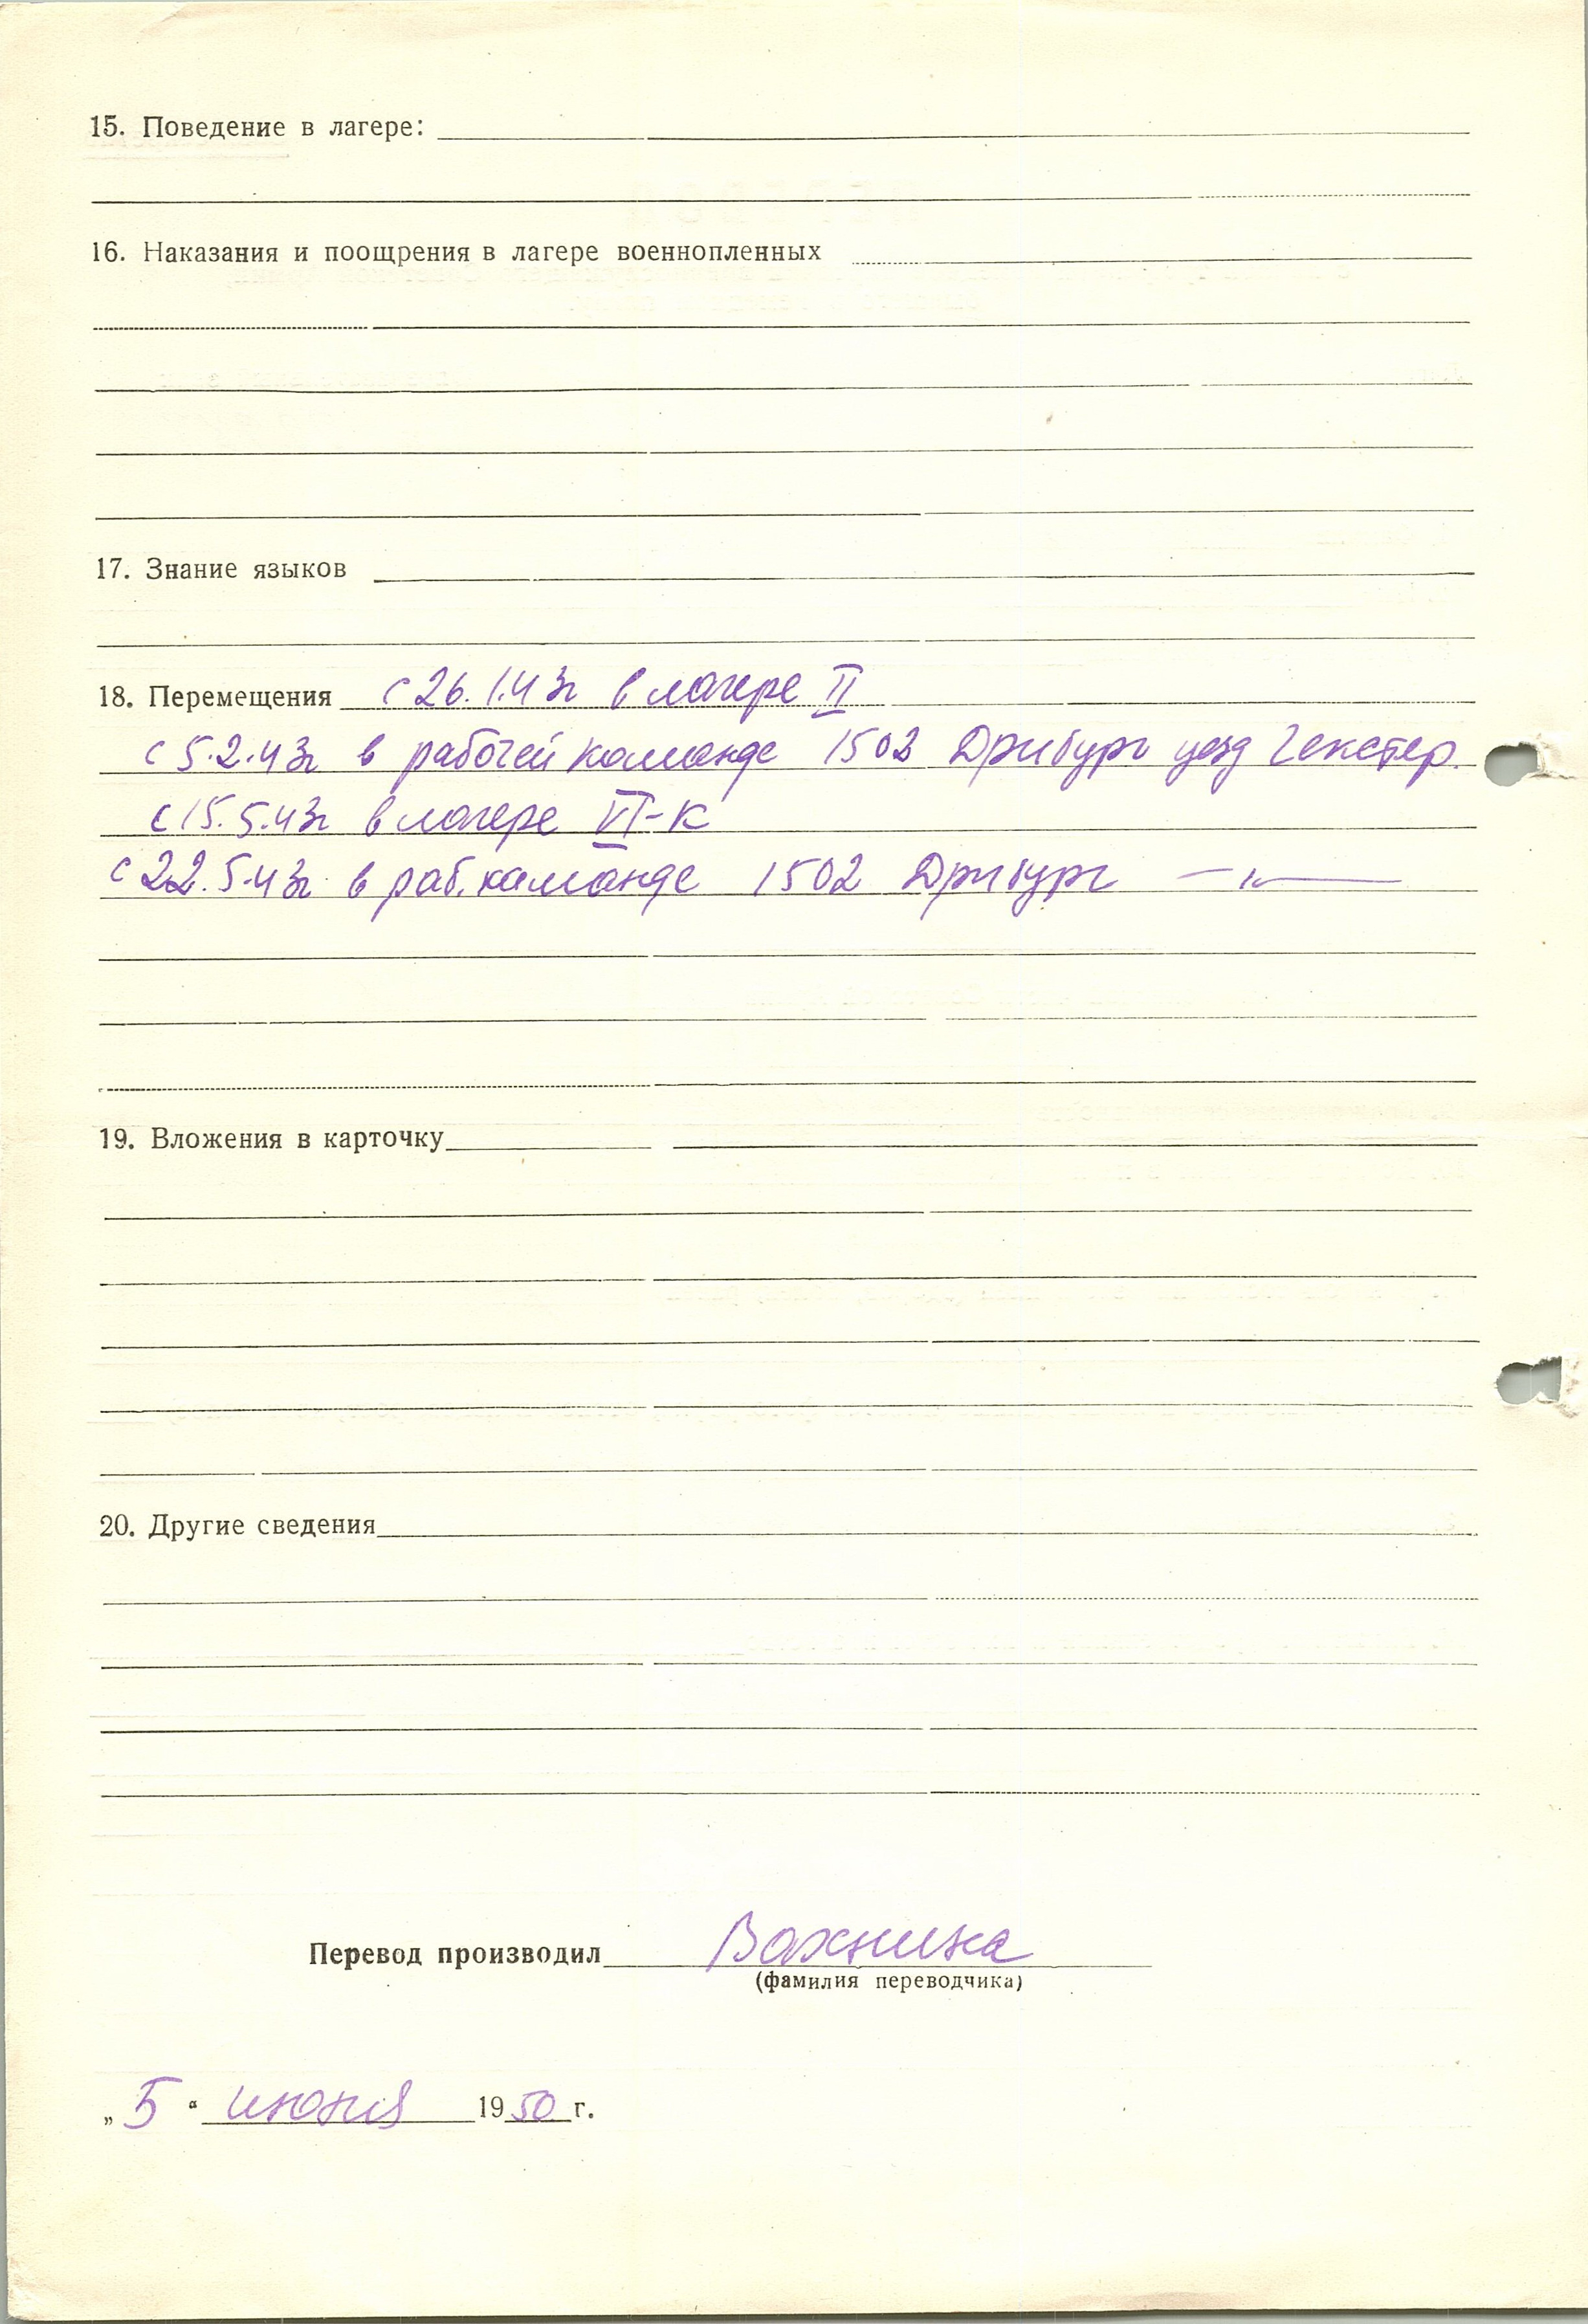 15. Поведение в лагере:
16. Наказания и поощрения в лагере военнопленных
17. Знание языков
18. Перемещения с 26.1.43г в лагере II
с 5.2.43г в рабочей команде 1502 Дрибург уезд Гекстер.
с 15.5.43г в лагере VI-К
с 22.5.43г в раб. команде 1502 Дрибург —〃—
19. Вложения в карточку
20. Другие сведения
Перевод производил Вахнина
(фамилия переводчика)
„5“ июня 1950 г.